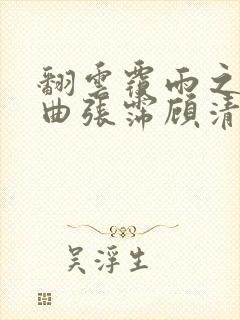 翻雲覆雨之
曲張霈顧清
吴浮生